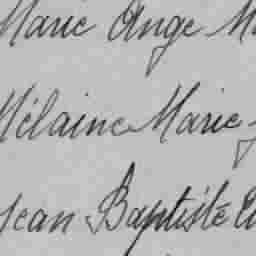 Marie Ange
Mélaine Marie
Jean Baptiste